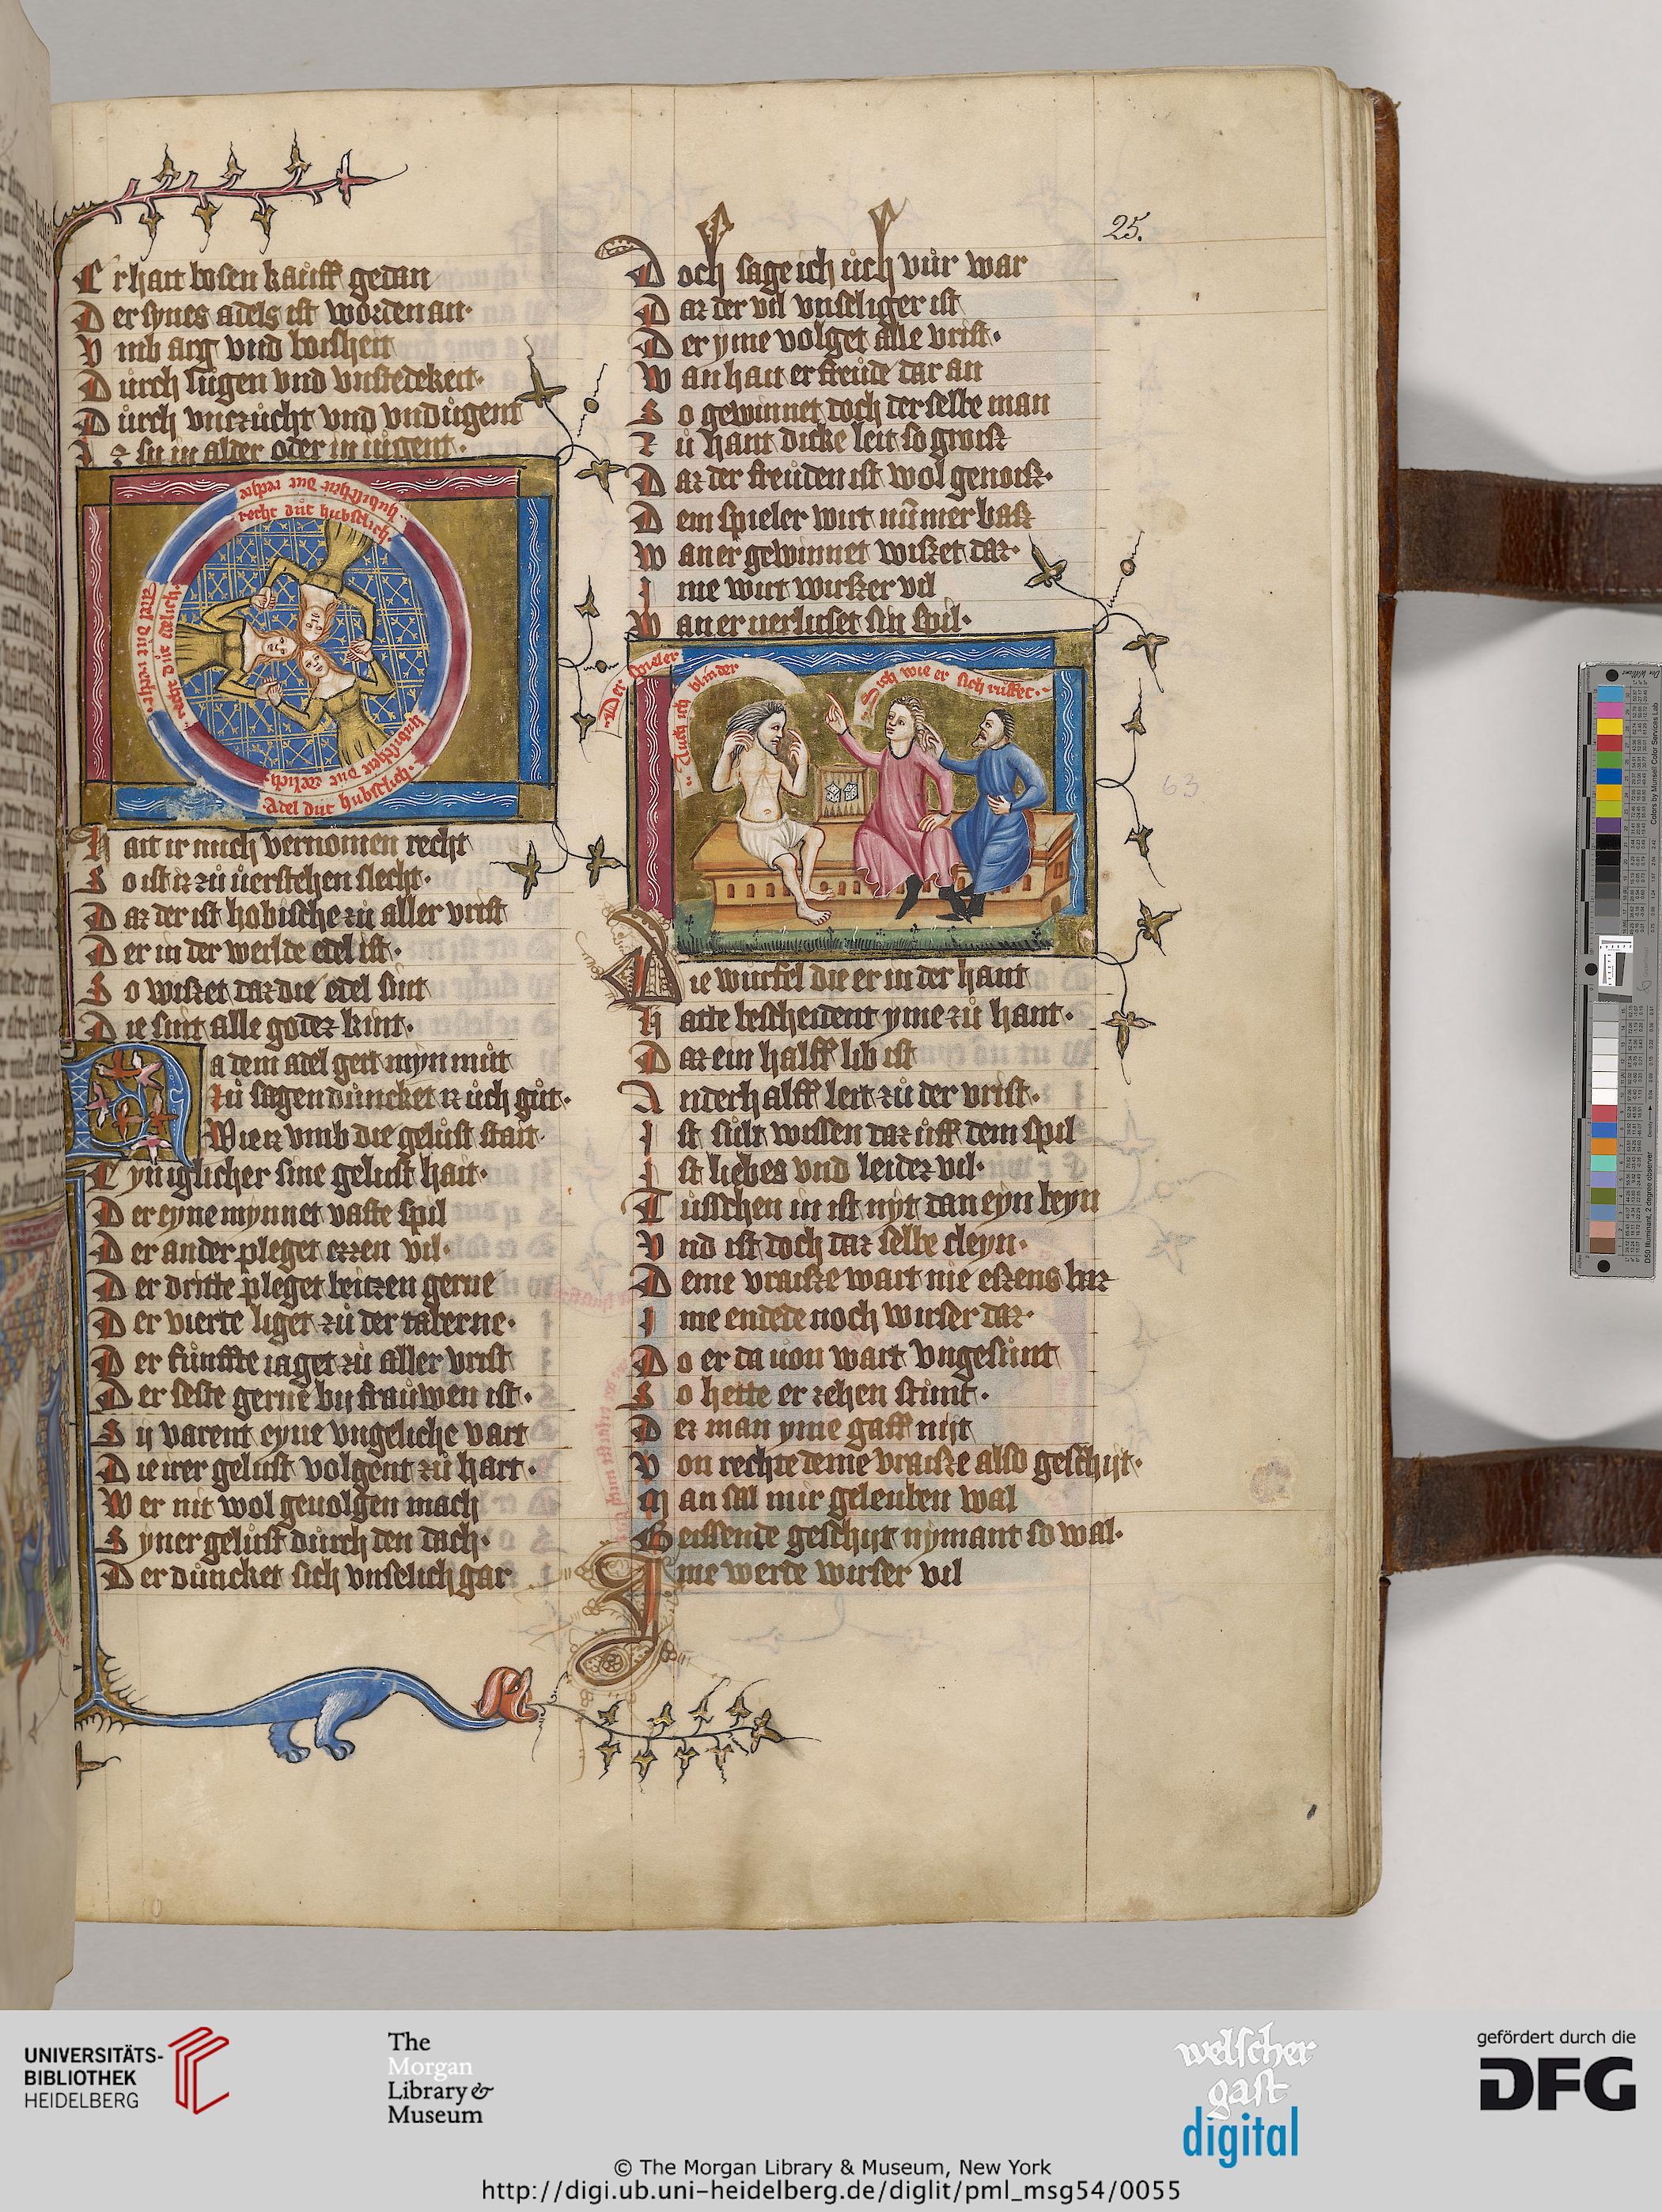 25.
Er hait bosen kauff gedan
Der synes adels ist worden an·
Vmb arg vnd bosheit
Durch lugen vnd vnstedekeit·
Důrch vnzůcht vnd vndůgent
Iz sy in alder oder in iugent·
hubischeit dut rechte
recht důt hubschlich·
adel důt rechte
recht důt edelich·
hubischeit dut edelich·
Adel důt hubschlich·
Hait ir mich vernomen recht
So ist iz zů uerstehen slecht·
Daz der ist hobische zů aller vrist
Der in der werlde edel ist·
So wißet daz die edel sint
Die sint alle godez kint·
Na dem adel gert myn můt
Zů sagen důncket iz ůch gůt·
Wie iz vmb die gelust stait
Eyniglicher sine gelust hait·
Der eyne mynnet vaste spil
Der ander pleget ezzen vil·
Der dritte pleget beitzen gerne
Der vierte liget zů der taberne·
Der fůnffte iaget zů aller vrist
Der seste gerne by fraůwen ist·
Sy varent eyne vngeliche vart
Die irer gelust volgent zů hart·
Wer nit wol geuolgen mach
Syner gelust důrch den dach·
Der důncket sich vnselich gar
Doch sage ich ůch vůr war
Daz der vil vnseliger ist
Der yme volget alle vrist·
Wan hait er freůde dar an
So gewinnet doch der selbe man
Zů hant dicke leit so groiß
Daz der freůden ist wol genoiß·
Dem spieler wirt nům̄er baß
Wan er gewinnet wißet daz·
Ime wirt wirßer vil
Wan er uerluset sin spil·
Der spieler
Auch ich blinder
Sich wie er sich růffet·
Die wurfel die er in der hant
Hatte bescheident yme zů hant·
Daz ein halff lib ist
Anderhalff leit zů der vrist·
Ist sich wissen daz ůff dem spil
Ist liebes vnd leidez vil·
Tůsschen in ist nyt dan eyn beyn
Vnd ist doch daz selbe cleyn·
Deme vraiße wart nie eßens biz
Ime endede noch wirser daz·
Do er da uon wart vngesunt
So hette er zehen stunt·
Dez man yme gaff nyt
Von rechte deme vraiße also geschyt·
Man sal mir geleuben wal
Beissende geschyt nymant so wal·
Ime werde wirser vil
63
UNIVERSITÄTS-
BIBLIOTHEK
HEIDELBERG
The
Morgan
Library &
Museum
welscher
gast
digital
gefördert durch die
DFG
© The Morgan Library & Museum, New York
http://digi.ub.uni-heidelberg.de/diglit/pml_msg54/0055